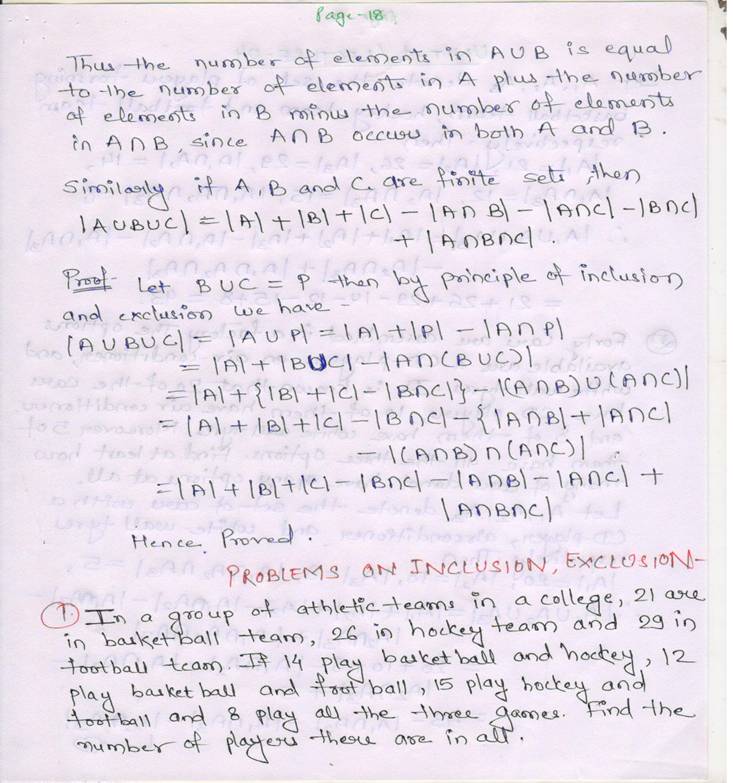 Page-18
Thus the number of elements in A ∪ B is equal
to the number of elements in A plus the number
of elements in B minus the number of elements
in A ∩ B, since A ∩ B occurs in both A and B.
Similarly if A, B and C are finite sets then
|A∪B∪C| = |A| + |B| + |C| - |A∩B| - |A∩C| - |B∩C|
+ |A∩B∩C|.
Proof- Let B∪C = P then by principle of inclusion
and exclusion we have -
|A∪B∪C| = |A∪P| = |A| + |P| - |A∩P|
= |A| + |B∪C| - |A∩(B∪C)|
= |A| + {|B| + |C| - |B∩C|} - |(A∩B)∪(A∩C)|
= |A| + |B| + |C| - |B∩C| - {|A∩B| + |A∩C|
- |(A∩B)∩(A∩C)|
= |A| + |B| + |C| - |B∩C| - |A∩B| - |A∩C| +
|A∩B∩C|
Hence Proved
PROBLEMS ON INCLUSION, EXCLUSION-
① In a group of athletic teams in a college, 21 are
in basket ball team, 26 in hockey team and 29 in
football team. If 14 play basket ball and hockey, 12
play basket ball and foot ball, 15 play hockey and
football and 8 play all the three games. Find the
number of players there are in all.